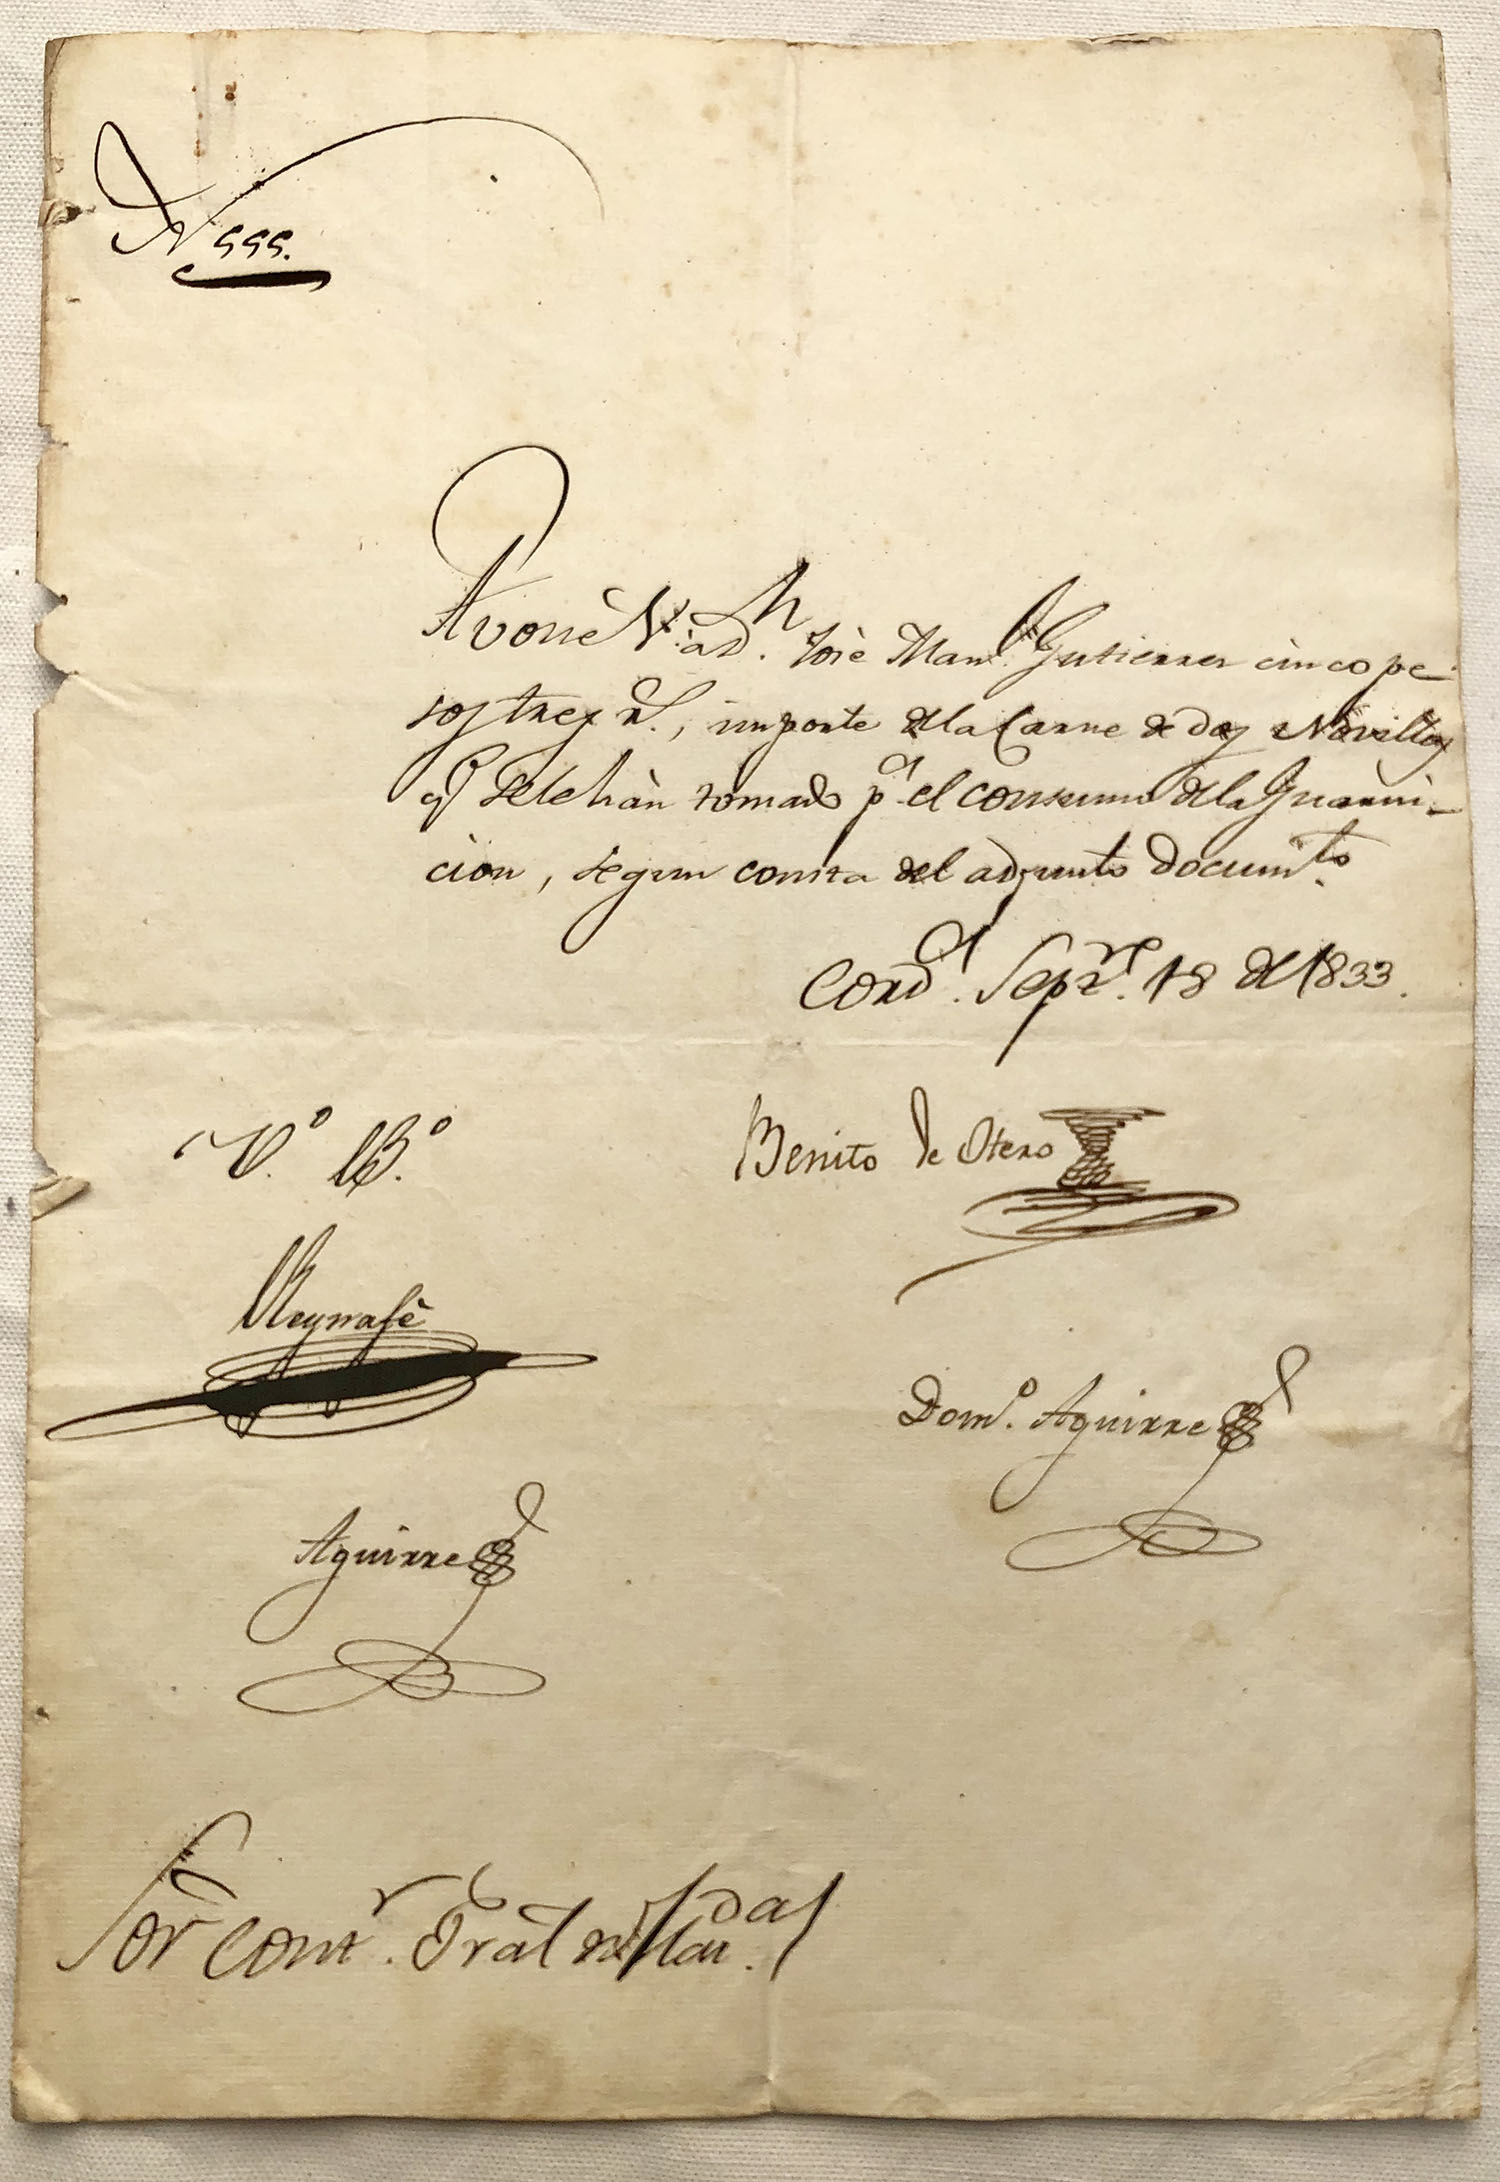 N 555.
Avonè V. à Dn. Josè Manl. Gutierres cinco pe-
sos tres rs., importe dela Carne de dos Novillos
qe. sele hàn tomado pa. el consumo dela Guarni-
cion, segun consta del adjunto Documto.
Cord.a Sepre. 18 de 1833.
Vo. Bo.
Benito de Otero
Reynafè
Domo. Aguirre
Aguirre
Sor Contr. Gral